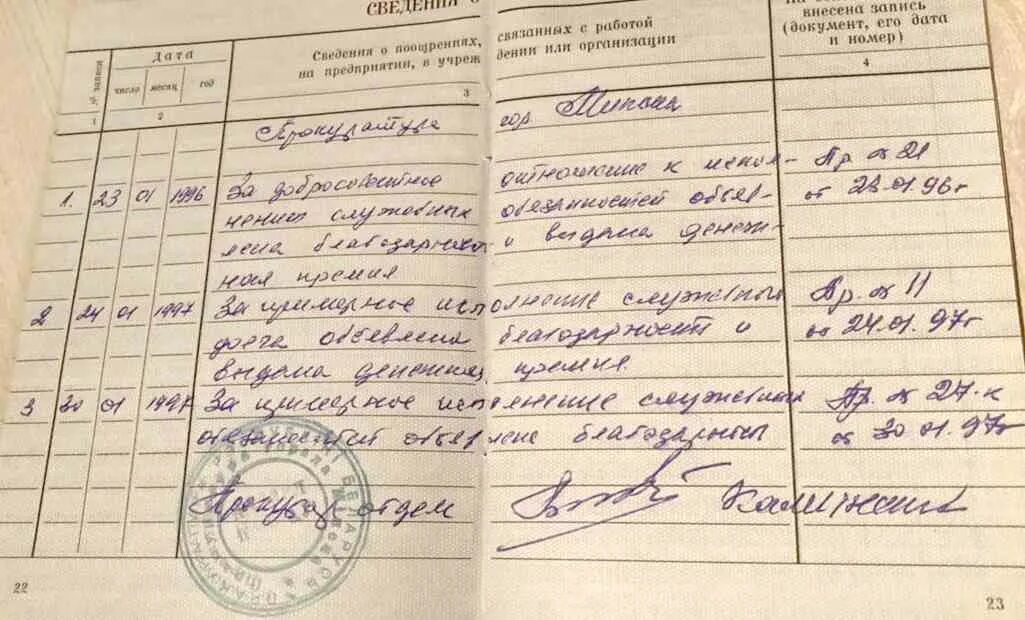 СВЕДЕНИЯ О
№ записи Дата Сведения о поощрениях, связанных с работой
на предприятии, в учреж дении или организации
внесена запись
(документ, его дата
и номер)
число месяц год
1 2 3 4
Прокуратура гор. Минска
1. 23 01 1996 За добросовестное отношение к испол- Пр. № 21
нению служебных обязанностей объяв- от 23.01.96г
лена благодарность и выдана денеж-
ная премия
2 24 01 1997 За примерное исполнение служебного Пр. № 11
долга объявлена благодарность и от 24.01.97г
выдана денежная премия.
3 30 01 1997 За примерное исполнение служебных Пр. № 27-к
обязанностей объявлена благодарность от 30.01.97г
Прокурор отдела
РЭСПУБЛІКІ БЕЛАРУСЬ
22
23